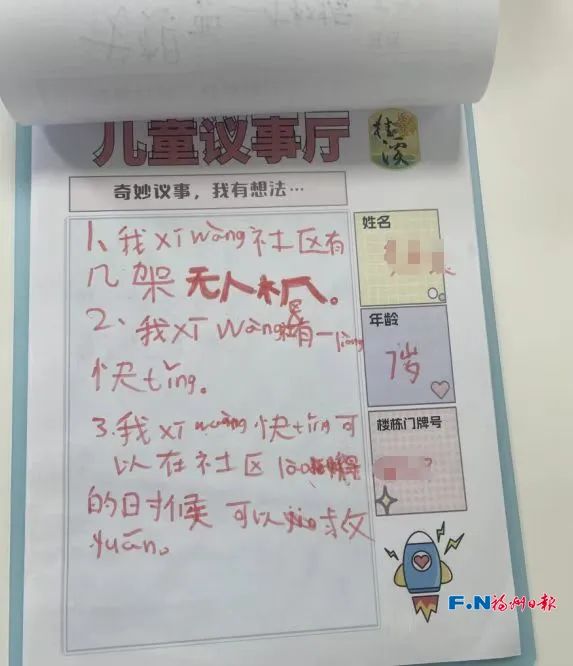 儿童议事厅
桂溪
奇妙议事，我有想法…
1、我xī wàng社区有
几架无人机。
2、我xī wàng有一liàng
快tǐng。
3.我xī wàng快tǐng可
以在社区
的时候可以求
yuán。
姓名
年龄
7岁
楼栋门牌号
F.N福州日报